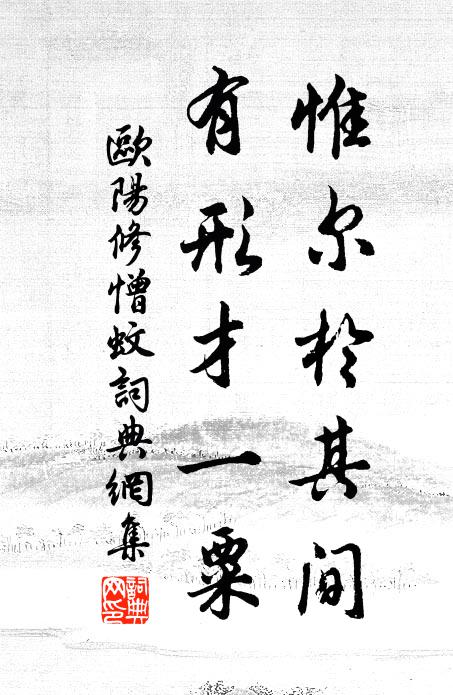 惟尔於其间
有形才一粟
歐陽修憎蚊詞典網集
詞典网印